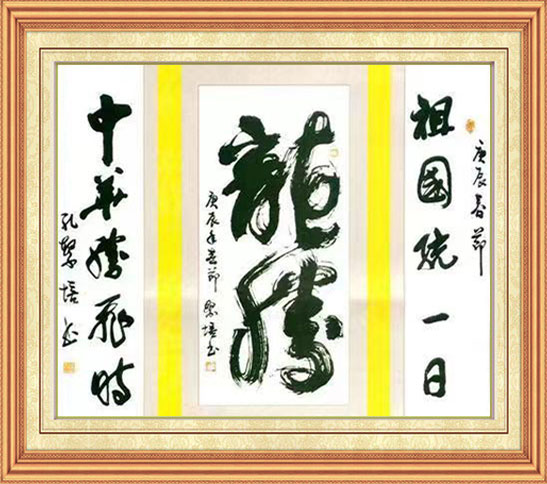 庚辰春節
祖國統一日
龍騰
庚辰年春節 繁培书
中華騰飛時
孔繁培书